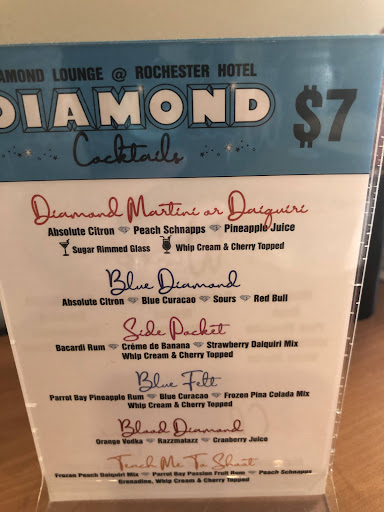 AMOND LOUNGE @ ROCHESTER HOTEL
DIAMOND
$7
Cocktails
Diamond Martini or Daiquiri
Absolute Citron Peach Schnapps Pineapple Juice
Sugar Rimmed Glass Whip Cream & Cherry Topped
Blue Diamond
Absolute Citron Blue Curacao Sours Red Bull
Side Pocket
Bacardi Rum Créme de Banana Strawberry Daiquiri Mix
Whip Cream & Cherry Topped
Blue Felt
Parrot Bay Pineapple Rum Blue Curacao Frozen Pina Colada Mix
Whip Cream & Cherry Topped
Blood Diamond
Orange Vodka Razzmatazz Cranberry Juice
Teach Me To Shoot
Frozen Peach Daiquiri Mix Parrot Bay Passion Fruit Rum Peach Schnapps
Grenadine, Whip Cream & Cherry Topped